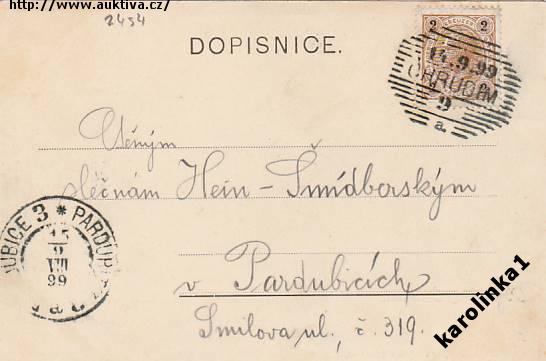 https://www.auktiva.cz/
2454
DOPISNICE.
2 KREUZER 2
14.9.99
CHRUDIM
9
a.
Ctěným
slečnám Hein-Šmídberským
v Pardubicích
Smilova ul., č. 319.
PARDUBICE 3 * PARDUBI
15
9
VIII
99
karolinka1